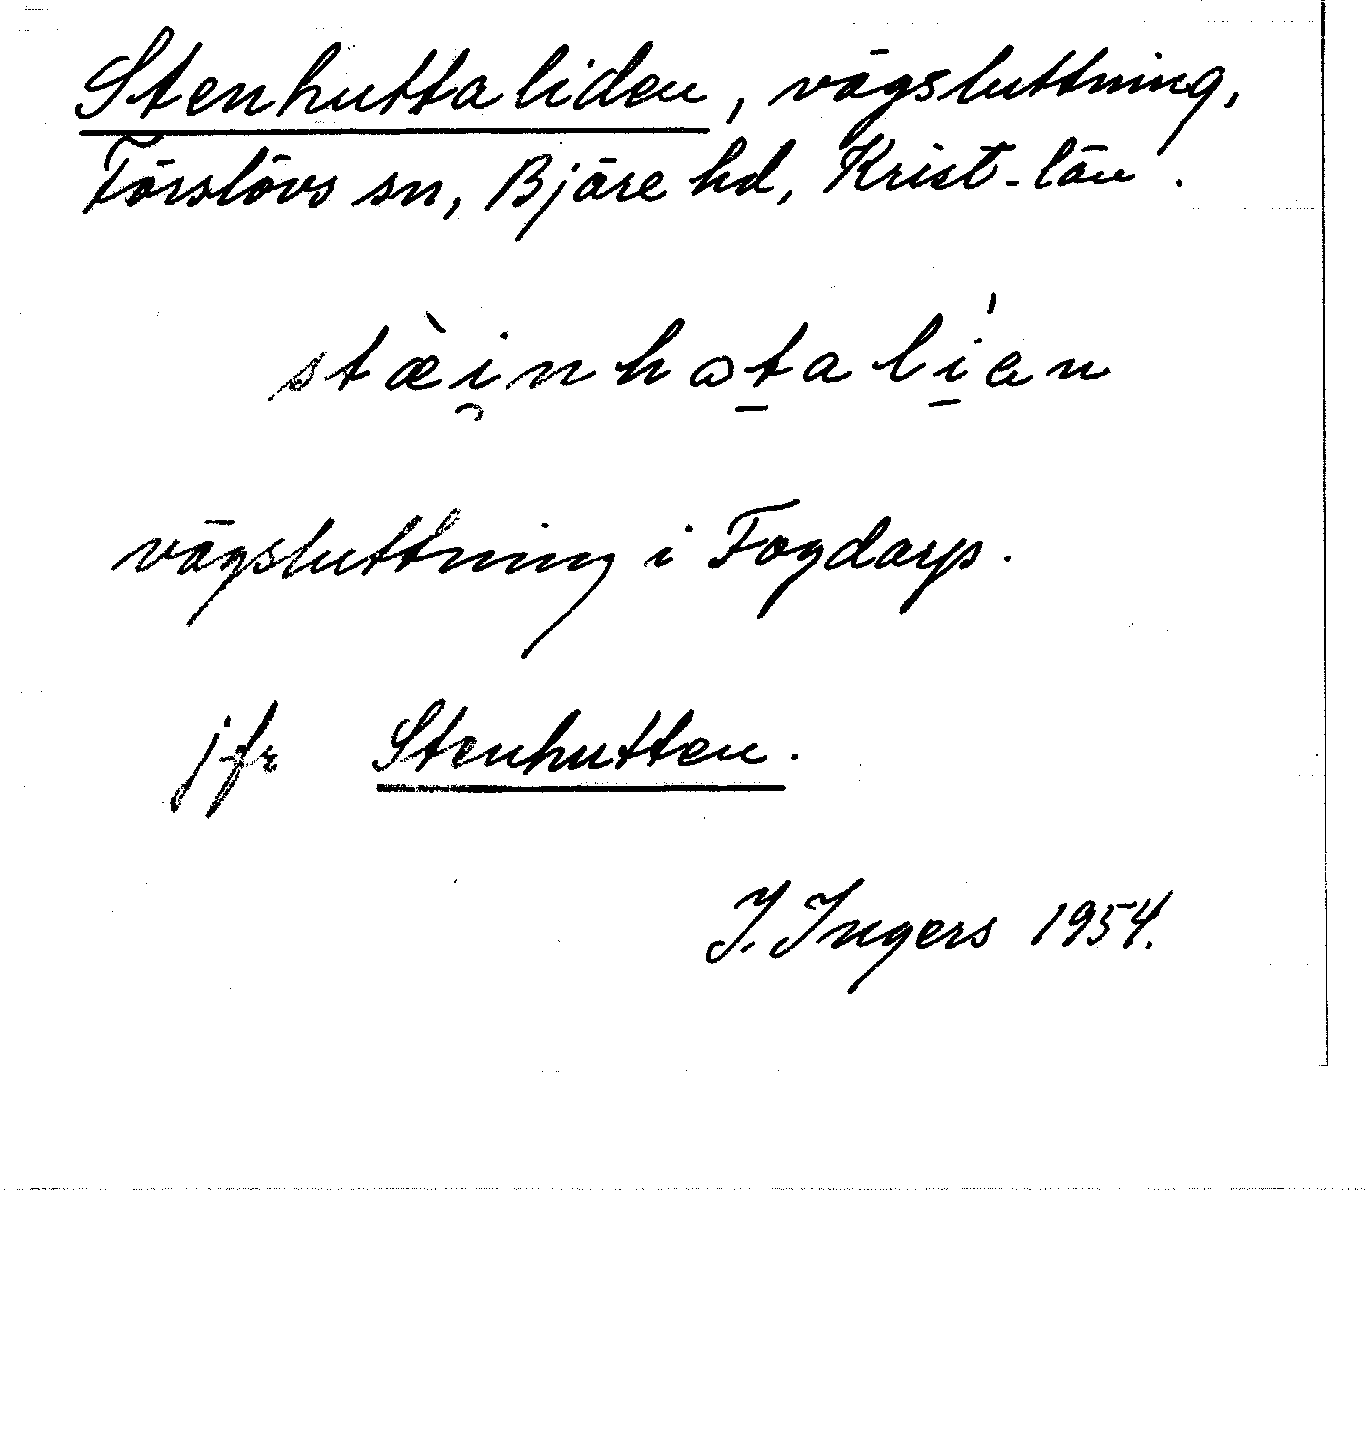 Stenhuttaliden, vägsluttning,
Förslövs sn, Bjäre hd, Krist-län.
stæ̀i̯nhɷt̠alí̠en
vägsluttning i Fogdarp.
jfr Stenhutten.
I. Ingers 1954.